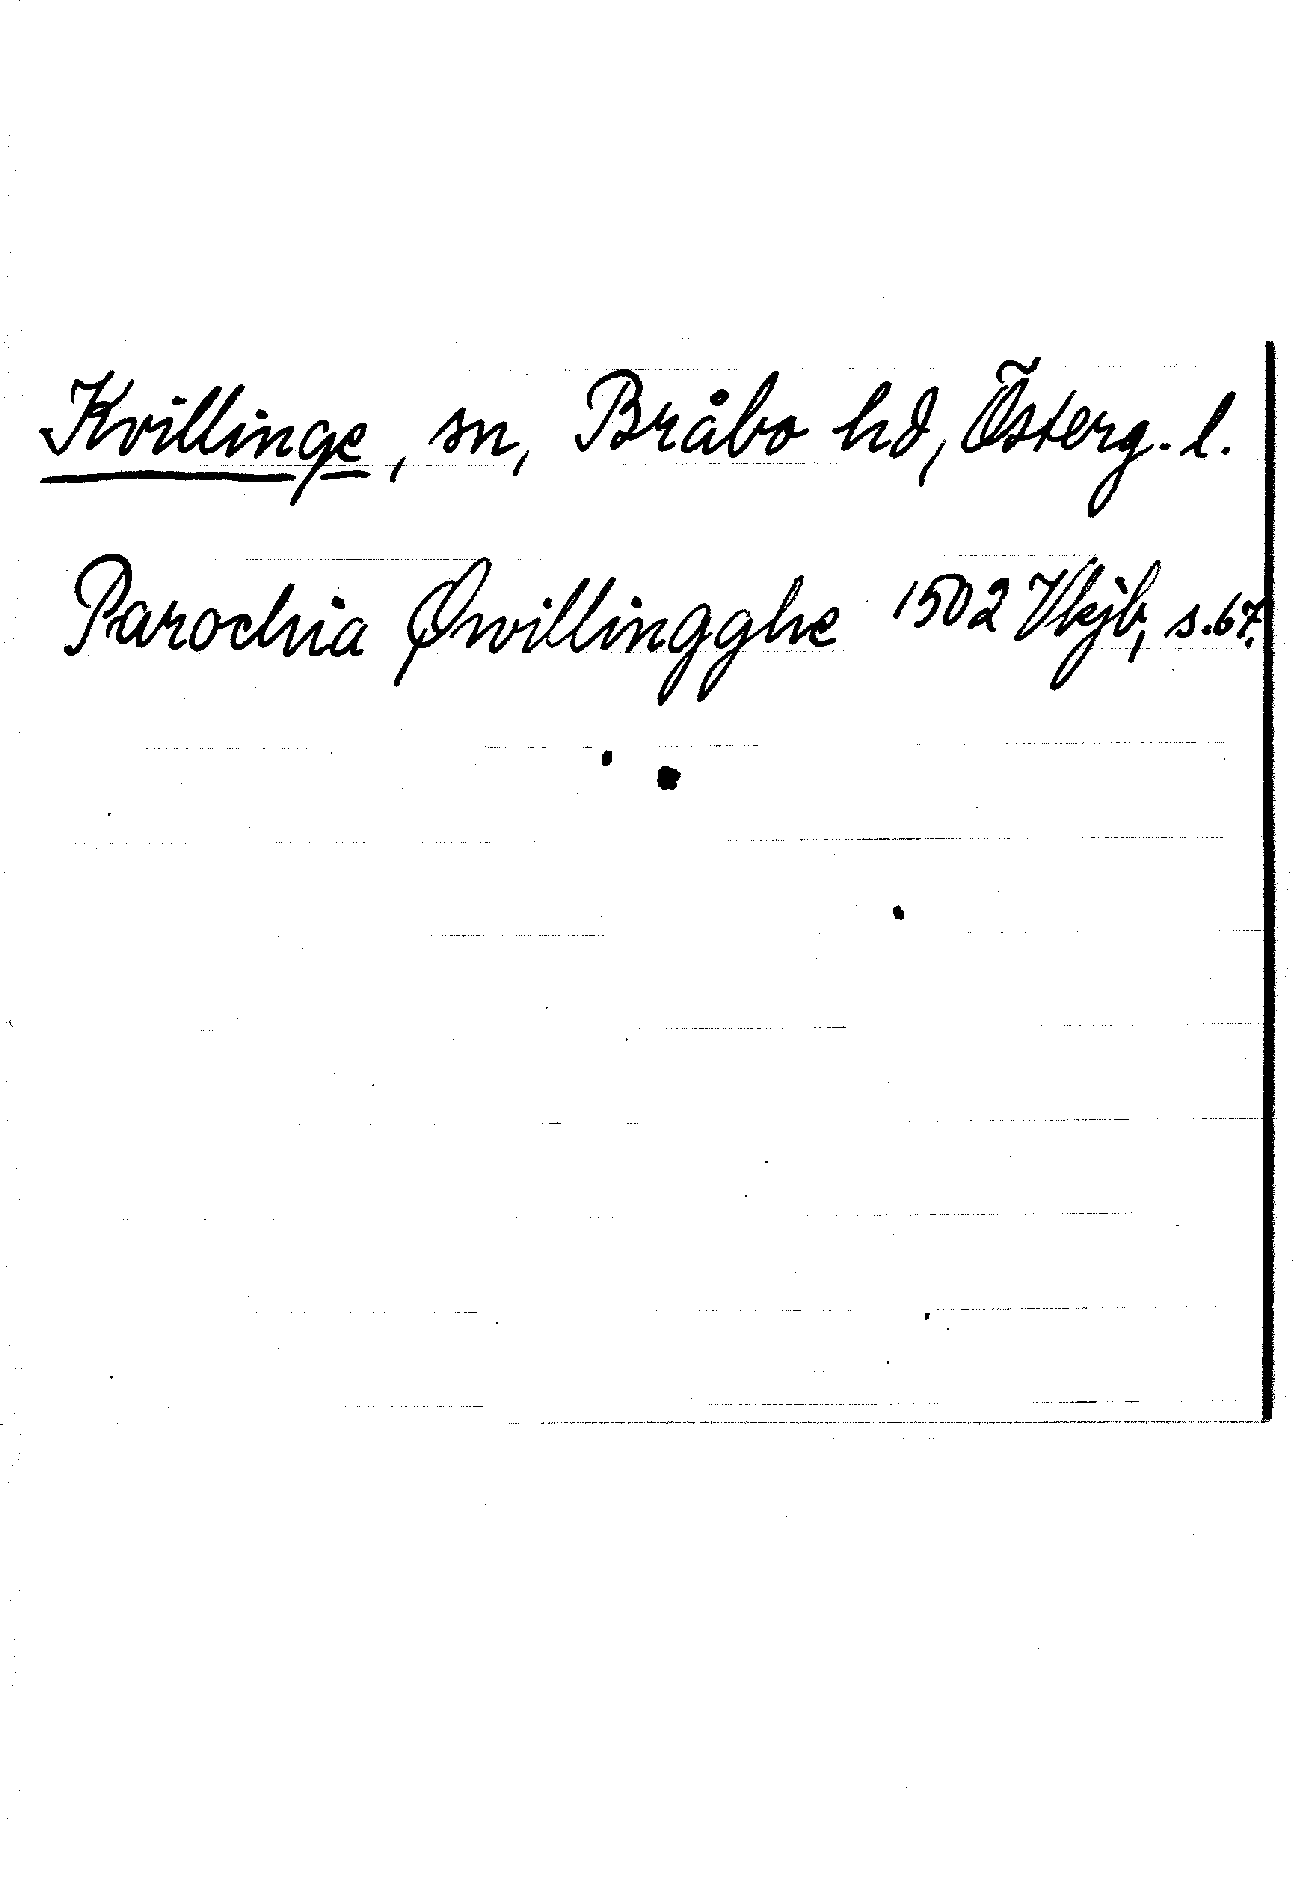 Kvillinge, sn, Bråbo hd, Österg. l.
Parochia Qwillingghe 1502 Vkjb, s. 67.